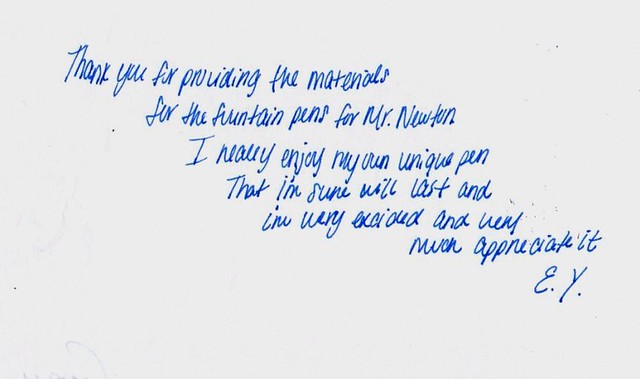 Thank you for providing the materials
for the fountain pens for Mr. Newton
I really enjoy my own unique pen
That i'm sure will last and
i'm very excided and very
much appreciate it
E. Y.